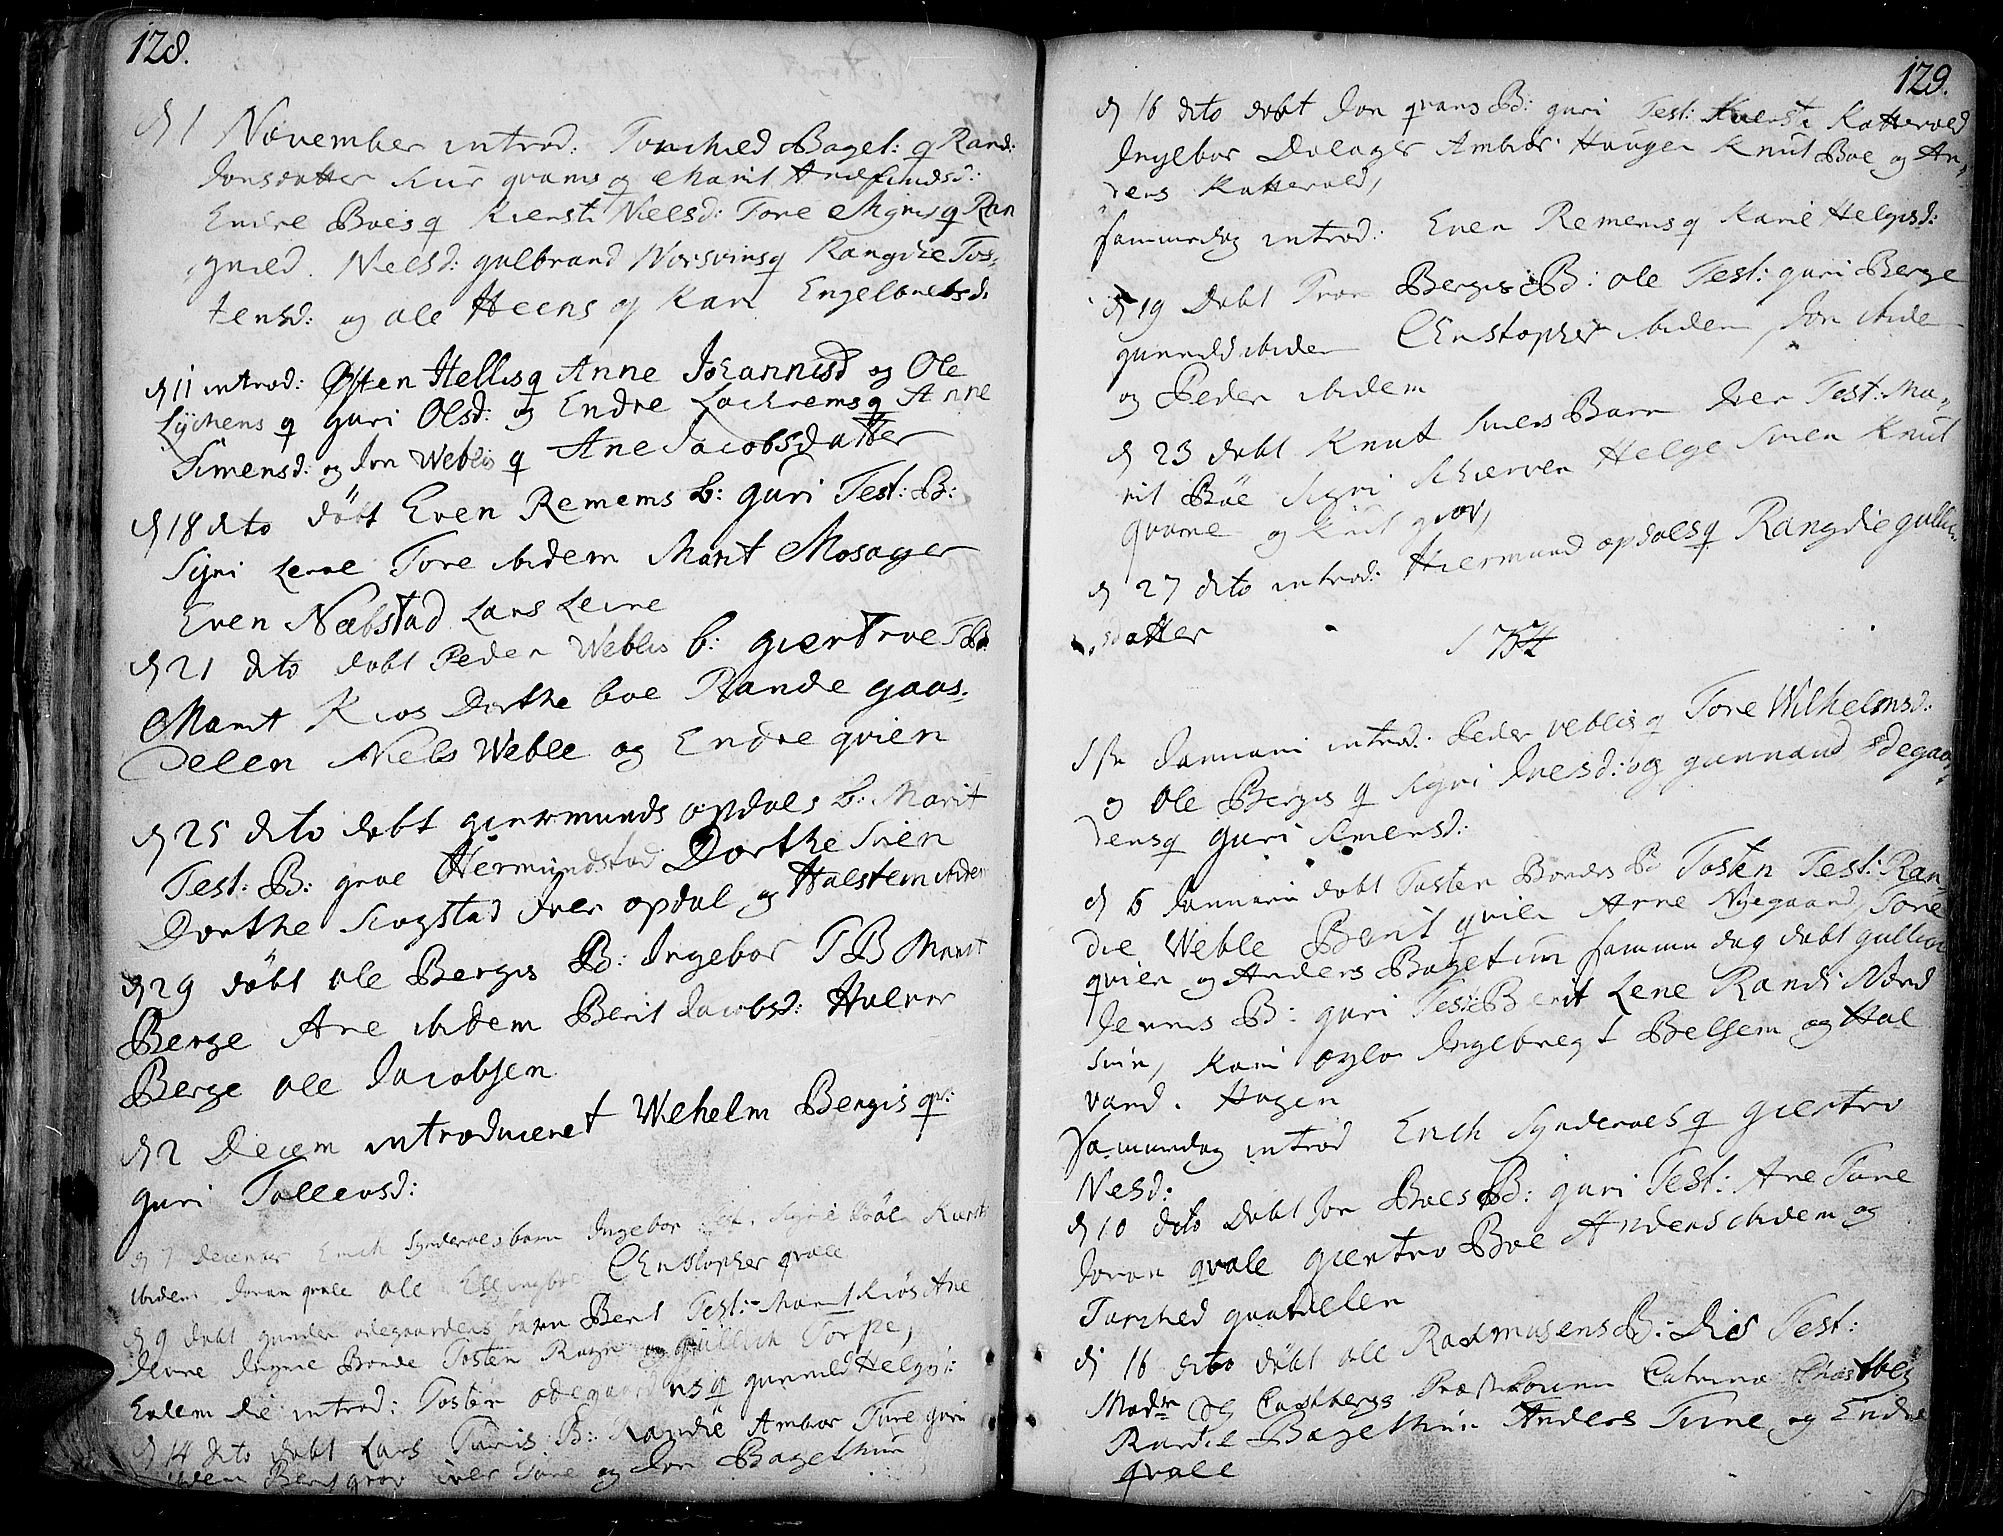 128.
d 1 November introd: Torchild Baget: q Rand:
Jonsdatter Siur qvams q Marit Arnefindsd:
Endre Boes q Kiersti Nielsd: Tore Mÿres q Ran
gnild. Nielsd: gulbrand Norsvins q Rangdie Tos-
tensd: og ole Heens q Kari Engelbretsd:
d 11 introd: Østen Hellis q Anne Johannisd og Ole
Lÿchens q guri Olsd: og Endre Lachrems q Anne
Simensd: og Jon Weblis q Ane Jacobsdatter
d 18 dito döbt Even Remems b: guri Test: B:
Sigri Leine Tore ibidem Marit Mosager
Even Nebstad Lars Leine
d 21 dito döbt Peder Weblis b: giertrue T:B:
Marit Kios Dorthe boe Rande gaas-
delen Niels Weble og Endre qvien
d 25 dito döbt giermunds opdals b: Marit
Test: B: groe Hermundstad Dorthe Sven
Dorthe Siogstad Iver opdal og Halsten ibidem
d 29 döbt ole Bergis B: Ingebor T B Marit
Berge Ane ibidem Berit Jacobsd: Halvor
Berge ole Jacobsen
d 2 Decem introduceret Welhelm Bergis qv:
guri Tollevsd:
d 7 decembr Erich Sÿndervols barn Ingebor Test: Sigri
ibidem Joran qvale ole Ellingboe Christopher qvale
d 9 döbt gunder ödegaardens barn Berit Test: Marit Kiös Ane
Tosten og gullich Torpe,
Eodem die introd: Tosten ödegaardens q gunnild Helgis:
d 14 dito döbt Lars Turis B: Randie Ambior Ture guri
ibidem Berit grov iver Ture og Jon Bagethun
129.
d 16 dito döbt Jon qvams B: guri Test: Kiersti Kattevold
Ingebor Dalager Ambiör Haugen Knut Boe og An-
ders Kattevold,
samme dag introd: Even Remems q Kari Helgisd:
d 19 Döbt Bergis B: ole Test: guri Berge
gunnild ibidem Christopher ibidem Jon ibidem
og Peder ibidem
d 23 döbt Knut Sivers Barn Iver Test: Ma-
rit Böe Sigri Schierven Helge Knut
qvarne og Knut grov,
d 27 dito introd: Hiermund opdals q Rangdie gullic-
sdatter
1754
1ste Januari introd: Peder veblis q Tore Wilhelmsd:
og Ole Bergis q Sigri Ivesd: og gunnund ödegaar-
dens q guri Simensd:
d 6 Januari döbt Tosten Bondes B Tosten Test: Ran-
die Weble Berit qvien Arne Nÿegaard, Tore
qvien og Anders Bagetun samme dag döbt gullic
Jevnes B: guri Test: Berit Lene Randi Nord
svin, Kari Ingebregt Belsem og Hal
vard. Hagen
samme dag introd Erich Sÿndervols q giertro
Nelsd:
d 10 dito Döbt Jon Boes B: guri Test: Ane Ture
Joran qvale giertro Boe Anders ibidem og
Torched gaardelen
d 16 dito döbt ole Rasmusens B: Dies Test:
Madm Og Castberg Catrina Castberg
Randie Bagethun Anders Ture og Endre
qvale